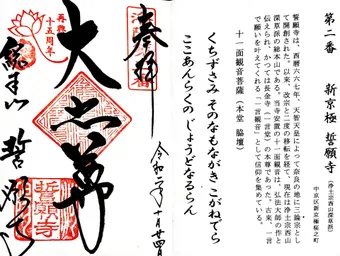 第二番　新京極　誓願寺（浄土宗西山深草派）
中京区新京極桜之町
誓願寺は、西暦六六七年、天智天皇によって奈良の地に三論宗とし
て開創された。以来、改宗と二度の移転を経て、現在は浄土宗西山
深草派の総本山である。当寺安置の十一面観音は、弘法大師の作と
伝えられ、かつては長金寺（一言堂）の本尊であった。古来、一言
で願いを叶えてくれる「一言観音」として信仰を集めている。
十一面観音菩薩（本堂　脇壇）
くちずさみ　そのなもながき　こがねでら
ここあんらくの　じょうどなるらん
奉拝
令和二年十月廿四日
再興
十五周年
大悲華
誓願寺